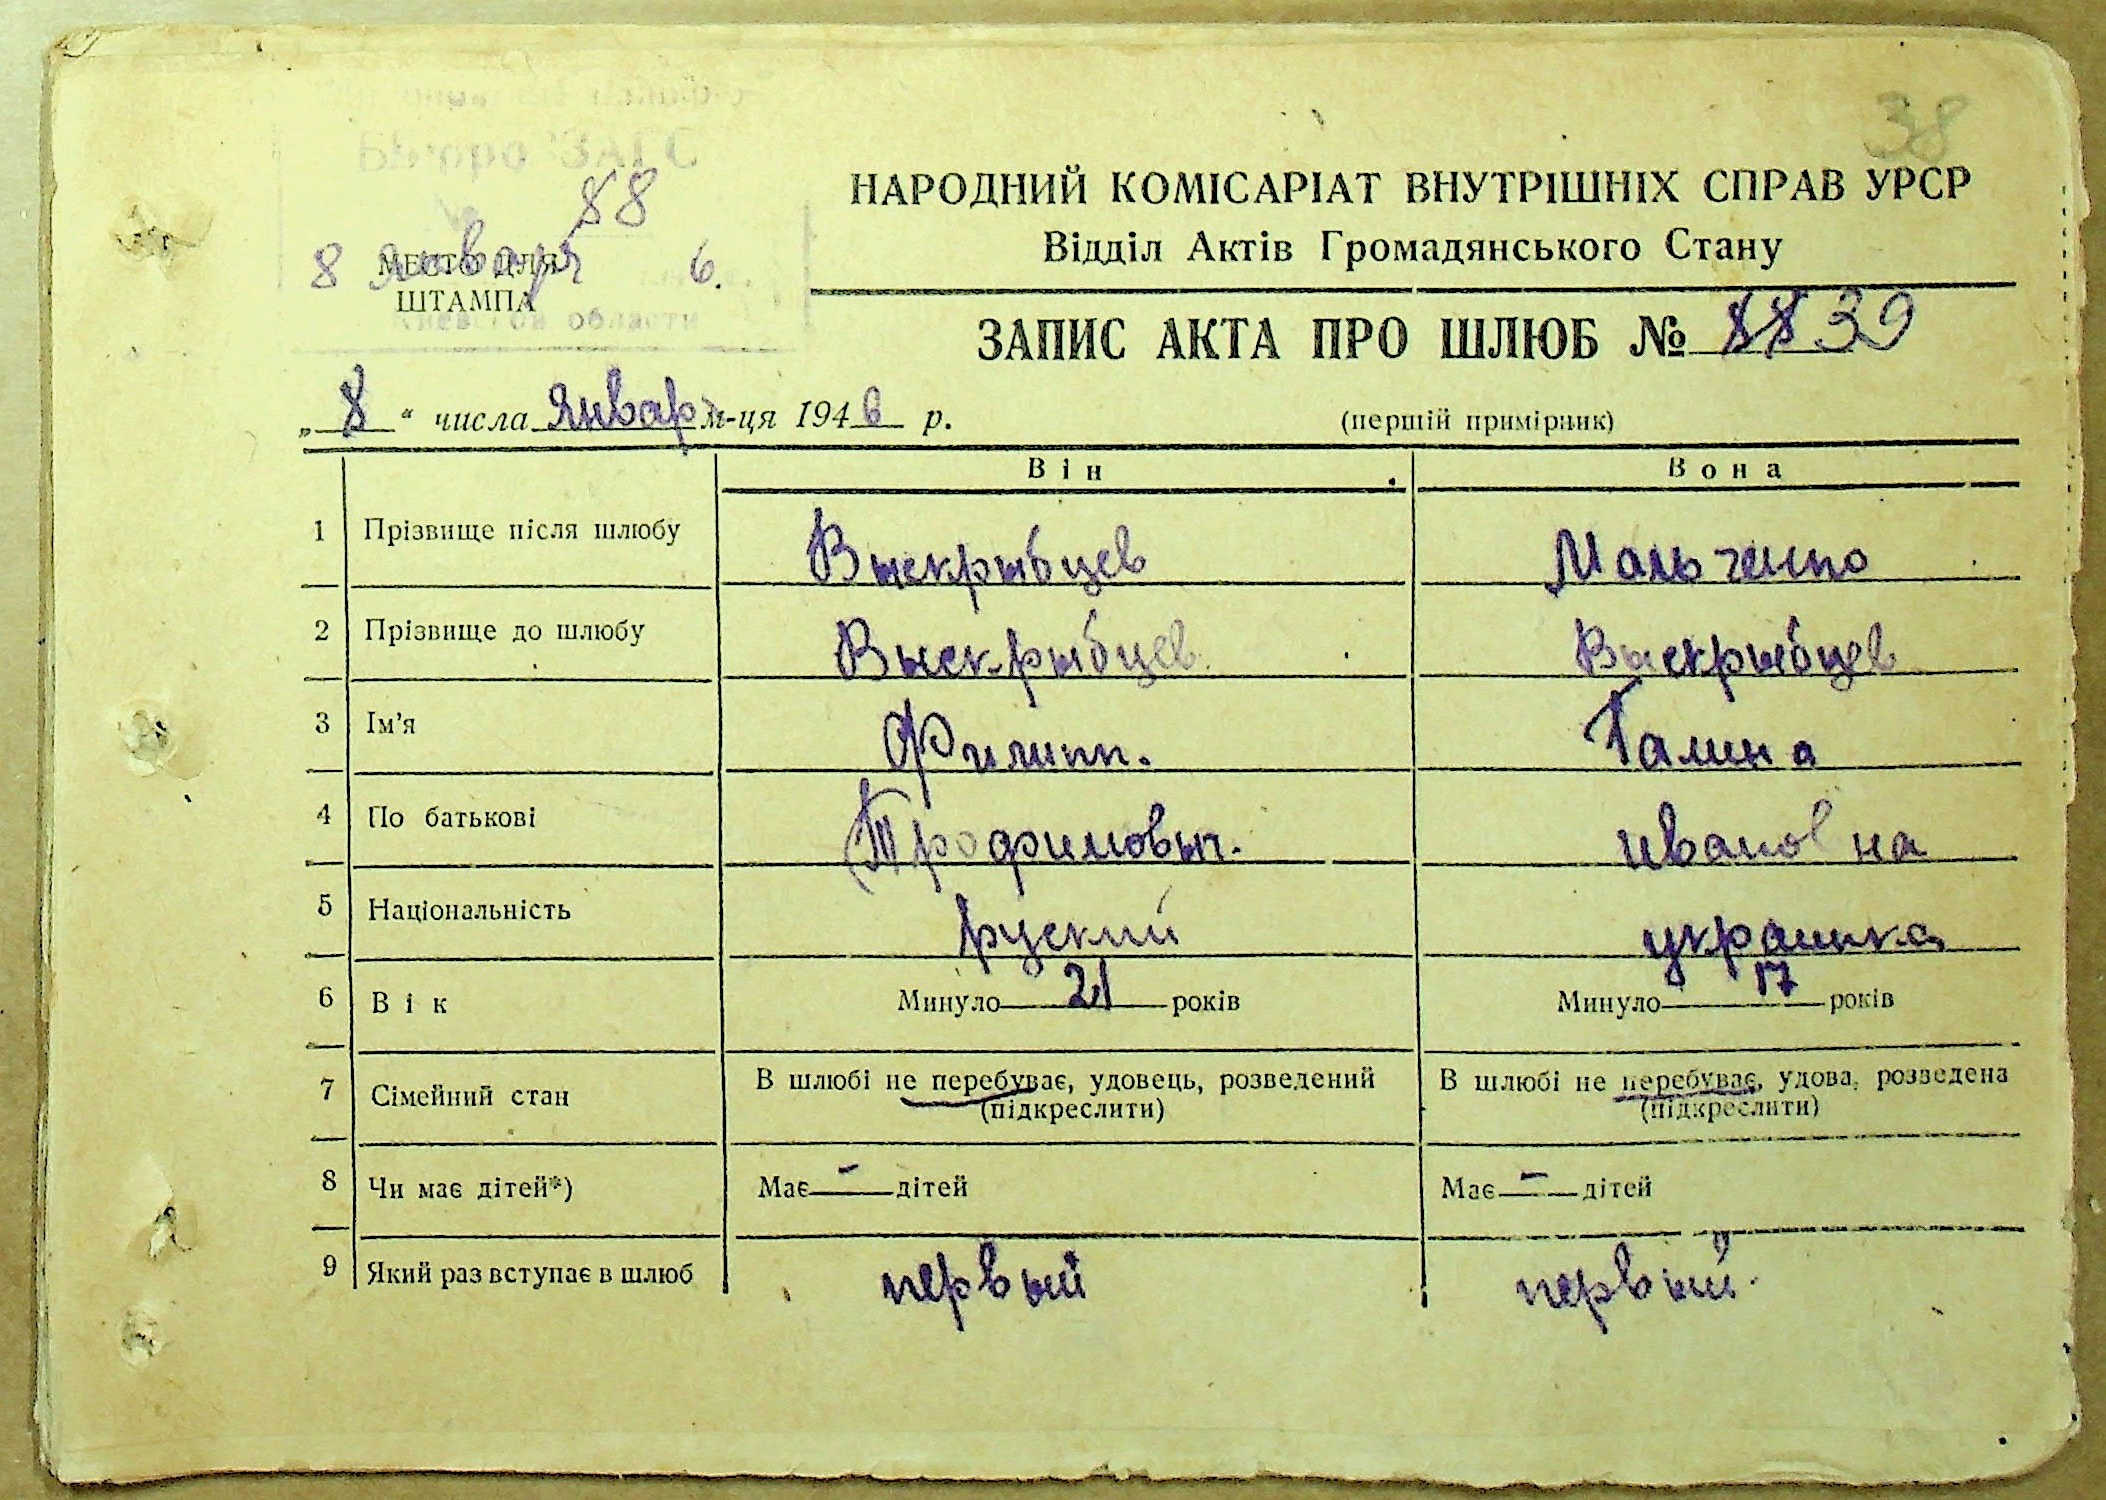 38
НАРОДНИЙ КОМІСАРІАТ ВНУТРІШНІХ СПРАВ УРСР
Відділ Актів Громадянського Стану
88
8 января 6.
МЕСТО ДЛЯ
ШТАМПА
Киевской области
ЗАПИС АКТА ПРО ШЛЮБ № 8839
„8“ числа январ м-ця 1946 р.
(перший примірник)
Він Вона
1 Прізвище після шлюбу Выскрыбцев Мальченко
2 Прізвище до шлюбу Выскрыбцев Выскрыбцев
3 Ім'я Филипп. Галина
4 По батькові Трофимовыч. Ивановна
5 Національність руский украинка
6 Вік Минуло 21 років Минуло 17 років
7 Сімейний стан В шлюбі не перебуває, удовець, розведений В шлюбі не перебуває, удова, розведена
(підкреслити) (підкреслити)
8 Чи має дітей*) Має – дітей Має – дітей
9 Який раз вступає в шлюб первый первый.